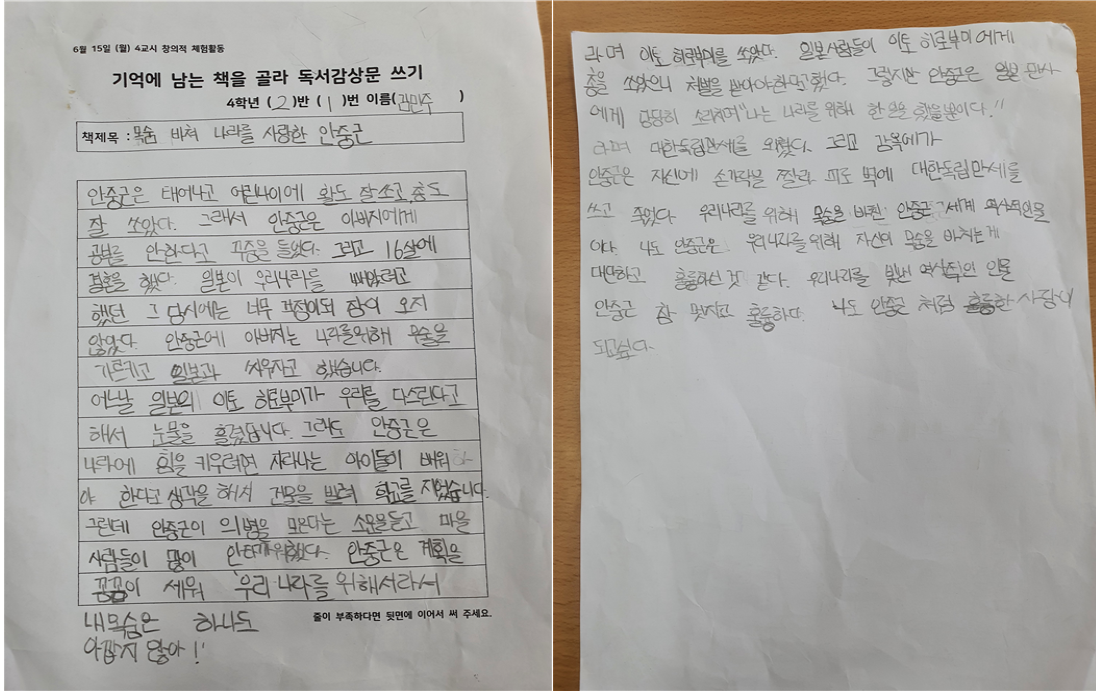 6월 15일 (월) 4교시 창의적 체험활동
기억에 남는 책을 골라 독서감상문 쓰기
4학년 (2)반 (1)번 이름(김민주)
책제목 : 목숨 바쳐 나라를 사랑한 안중근
안중근은 태어나고 어린나이에 활도 잘 쏘고, 총도
잘 쏘았다. 그래서 안중근은 아버지에게
공부를 안한다고 꾸중을 들었다. 그리고 16살에
결혼을 했다. 일본이 우리나라를 빼앗려고
했던 그 당시에는 너무 걱정이되 잠이 오지
않았다. 안중근에 아버지는 나라를위해 무술을
가르키고 일본과 싸우자고 했습니다.
어느날 일본의 이토 히로부미가 우리를 다스린다고
해서 눈물을 흘렸답니다. 그래도 안중근은
나라에 힘을 키우려면 자라나는 아이들이 배워하
야 한다고 생각을 해서 건물을 빌려 학교를 지었습니다.
그런데 안중근이 의병을 모은다는 소문을듣고 마을
사람들이 많이 안타까워했다. 안중근은 계획을
꼼꼼이 세워 '우리 나라를 위해서라서
내목숨은 하나도
아깝지 않아!'
줄이 부족하다면 뒷면에 이어서 써 주세요.
라며 이토 히로부미를 쏘았다. 일본사람들이 이토 히로부미에게
총을 쏘았으니 처벌을 받아야한다고 했다. 그렇지만 안중근은 일본 판사
에게 당당히 소리치며 "나는 나라를 위해 한 일을 했을뿐이다."
라며 대한독립만세를 외쳤다. 그리고 감옥에가
안중근은 자신에 손가락을 짤라 피로 벽에 대한독립만세를
쓰고 죽었다. 우리나라를 위해 목숨을 바친 안중근은 세계 역사적인물
이다. 나도 안중근은 우리나라를위해 자신의 목숨을 바치는게
대단하고 훌륭하신것 같다. 우리나라를 빛낸 역사적인 인물
안중근 참 멋지고 훌륭하다. 나도 안중근 처럼 훌륭한 사람이
되고싶다.